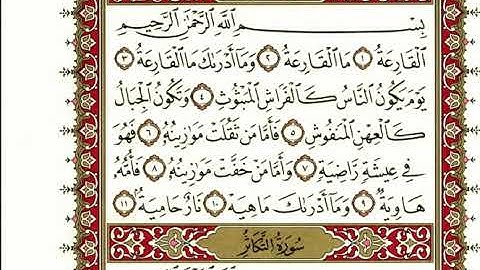 بِسْمِ اللَّهِ الرَّحْمَٰنِ الرَّحِيمِ
الْقَارِعَةُ ١ مَا الْقَارِعَةُ ٢ وَمَا أَدْرَىٰكَ مَا الْقَارِعَةُ ٣
يَوْمَ يَكُونُ النَّاسُ كَالْفَرَاشِ الْمَبْثُوثِ ٤ وَتَكُونُ الْجِبَالُ
كَالْعِهْنِ الْمَنْفُوشِ ٥ فَأَمَّا مَنْ ثَقُلَتْ مَوَٰزِينُهُۥ ٦ فَهُوَ
فِي عِيشَةٍ رَّاضِيَةٍ ٧ وَأَمَّا مَنْ خَفَّتْ مَوَٰزِينُهُۥ ٨ فَأُمُّهُۥ
هَاوِيَةٌ ٩ وَمَا أَدْرَىٰكَ مَا هِيَهْ ١٠ نَارٌ حَامِيَةٌ ١١
سُورَةُ التَّكَاثُرِ